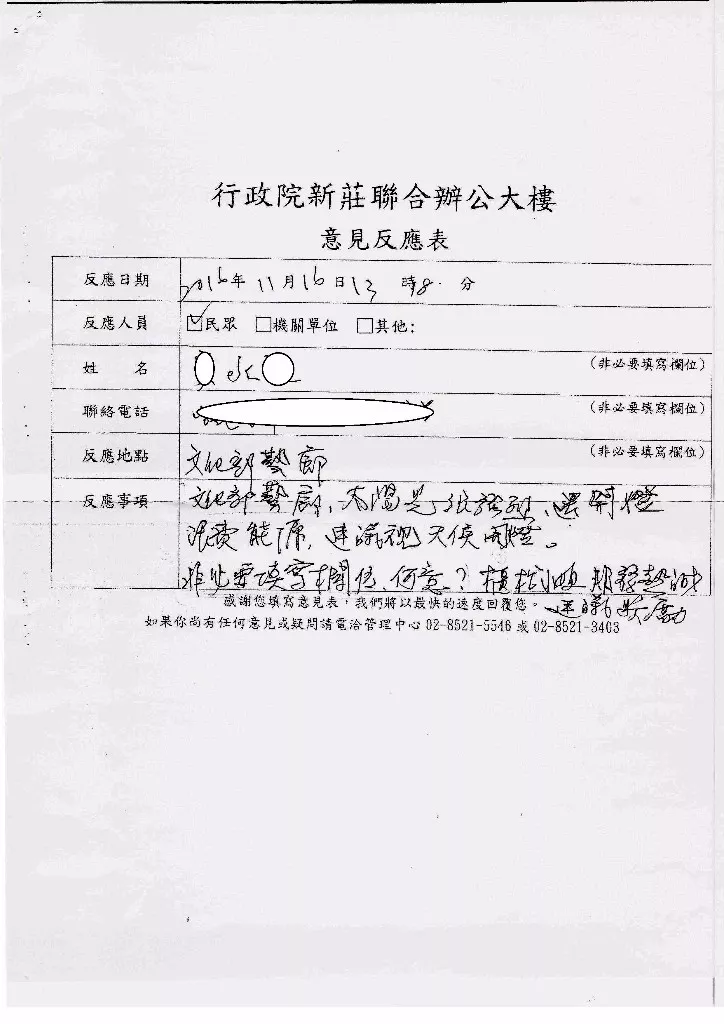 行政院新莊聯合辦公大樓
意見反應表
反應日期 2016年 11月16日13時8分
反應人員 ☑民眾 □機關單位 □其他:
姓 名 (非必要填寫欄位)
聯絡電話 (非必要填寫欄位)
反應地點 文化部藝廊 (非必要填寫欄位)
反應事項 文化部藝廊,太陽光強烈,還開燈
浪費能源,建議視天候開燈。
非必要填寫欄位,何意?櫃枱小姐服務熱誠
建議獎勵
感謝您填寫意見表,我們將以最快的速度回覆您。
如果你尚有任何意見或疑問請電洽管理中心 02-8521-5546 或 02-8521-3403